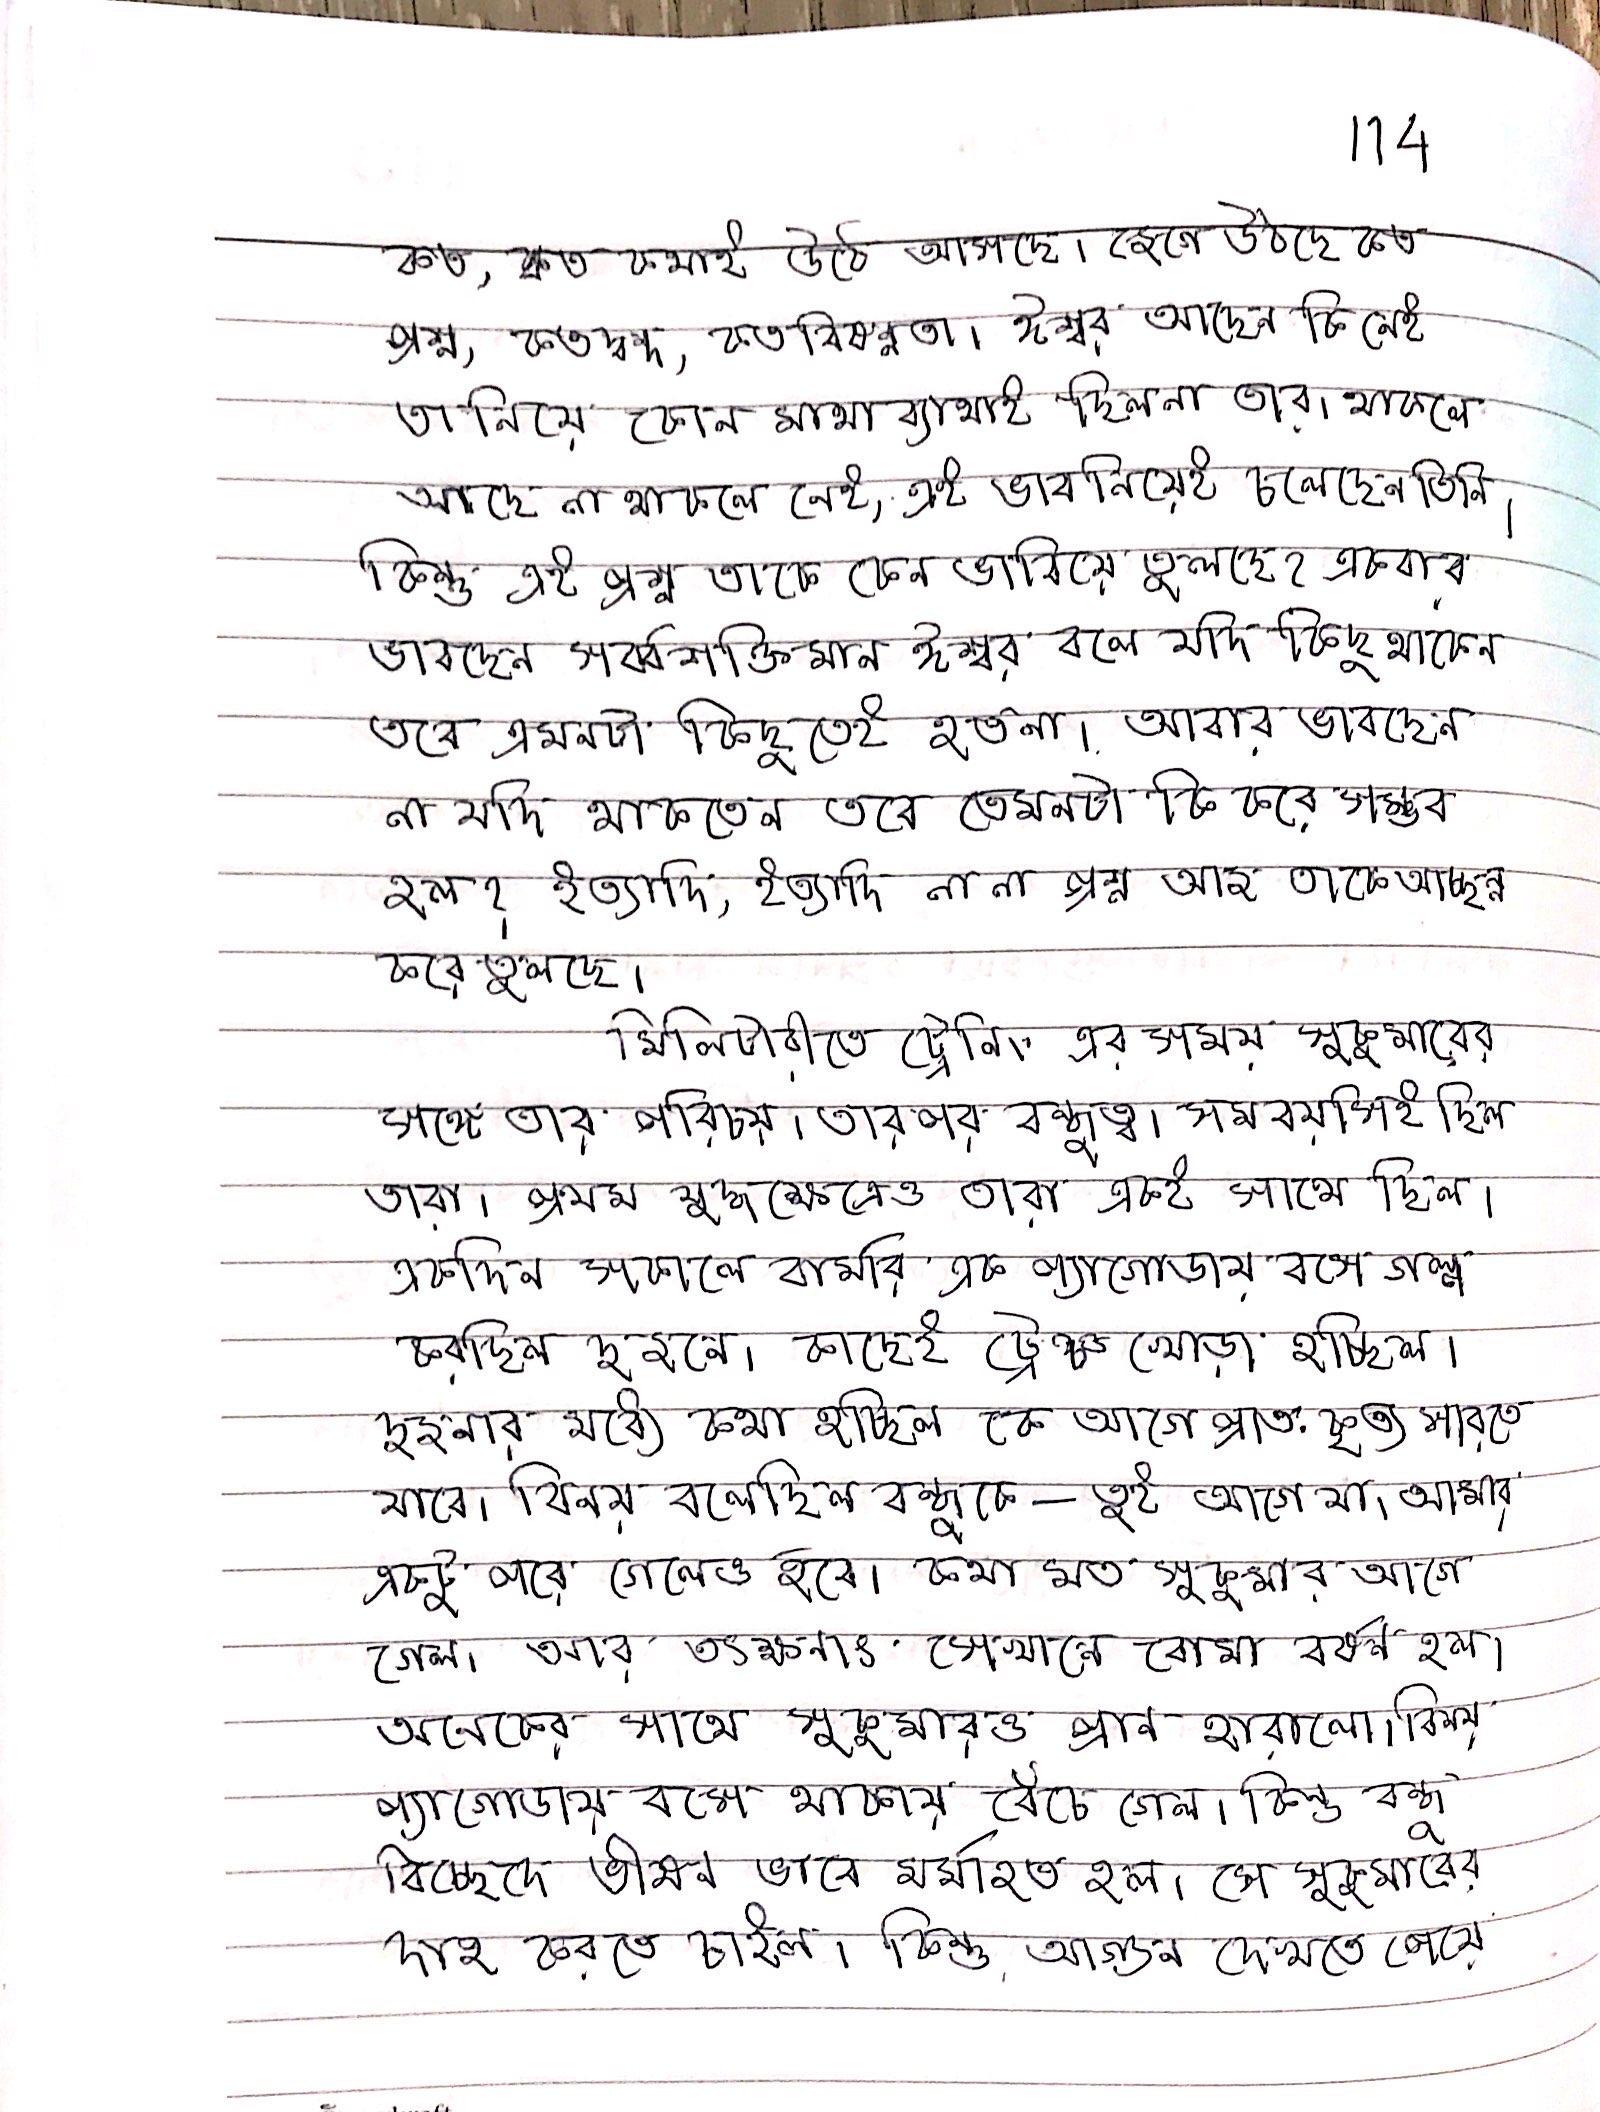 114
কত, কত কথাই উঠে আসছে। জেগে উঠছে কত
প্রশ্ন, কতদ্বন্দ, কতবিষন্নতা। ঈশ্বর আছেন কি নেই
তা নিয়ে কোন মাথা ব্যাথাই ছিলনা তার। থাকলে
আছে না থাকলে নেই, এই ভাব নিয়েই চলেছেন তিনি।
কিন্তু এই প্রশ্ন তাকে কেন ভাবিয়ে তুলছে? একবার
ভাবছেন সর্বশক্তিমান ঈশ্বর বলে যদি কিছু থাকেন
তবে এমনটা কিছুতেই হতনা। আবার ভাবছেন
না যদি থাকতেন তবে তেমনটা কি করে সম্ভব
হল? ইত্যাদি, ইত্যাদি নানা প্রশ্ন আজ তাকে আচ্ছন্ন
করে তুলছে।
মিলিটারীতে ট্রেনিং এর সময় সুকুমারের
সঙ্গে তার পরিচয়। তারপর বন্ধুত্ব। সমবয়সিই ছিল
তারা। প্রথম যুদ্ধক্ষেত্রেও তারা একই সাথে ছিল।
একদিন সকালে বার্মার এক প্যাগোডায় বসে গল্প
করছিল দুজনে। কাছেই ট্রেঞ্চ খোড়া হচ্ছিল।
দুজনার মধ্যে কথা হচ্ছিল কে আগে প্রাতঃকৃত্য সারতে
যাবে। বিনয় বলেছিল বন্ধুকে — তুই আগে যা। আমার
একটু পরে গেলেও হবে। কথা মত সুকুমার আগে
গেল। আর তৎক্ষনাৎ সেখানে বোমা বর্ষন হল।
অনেকের সাথে সুকুমারও প্রান হারালো। বিনয়
প্যাগোডায় বসে থাকায় বেঁচে গেল। কিন্তু বন্ধু
বিচ্ছেদে ভীষন ভাবে মর্মাহত হল। সে সুকুমারের
দাহ করতে চাইল। কিন্তু আগুন দেখতে পেয়ে